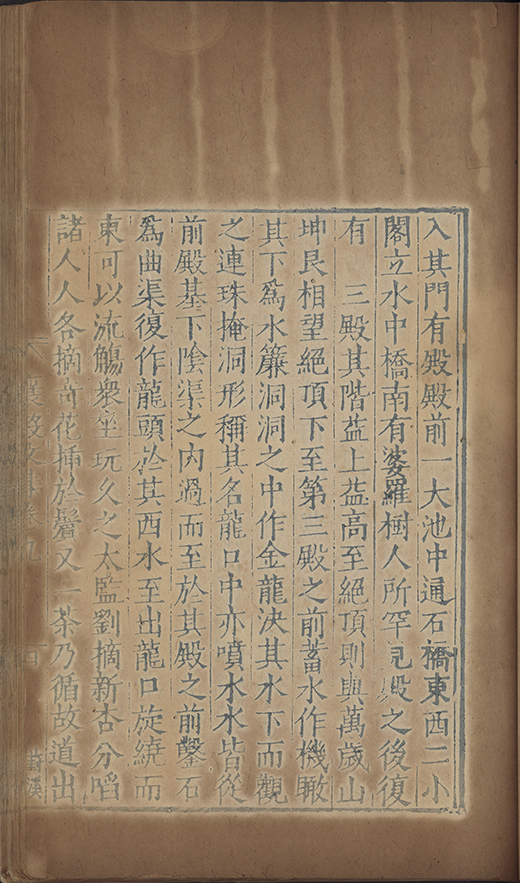 入其門有殿殿前一大池中通石橋東西二小
閣立水中橋南有婆羅樹人所罕見殿之後復
有　三殿其階益上益高至絕頂則與萬歲山
坤艮相望絕頂下至第三殿之前蓄水作機轍
其下爲水簾洞洞之中作金龍決其水下而觀
之連珠掩洞形稱其名龍口中亦噴水水皆從
前殿基下陰渠之內過而至於其殿之前鑿石
爲曲渠復作龍頭於其西水至出龍口旋繞而
東可以流觴衆座玩久之太監劉摘新杏分啗
諸人人各摘奇花揷於鬢又一茶乃循故道出
襄毅文集卷九　四